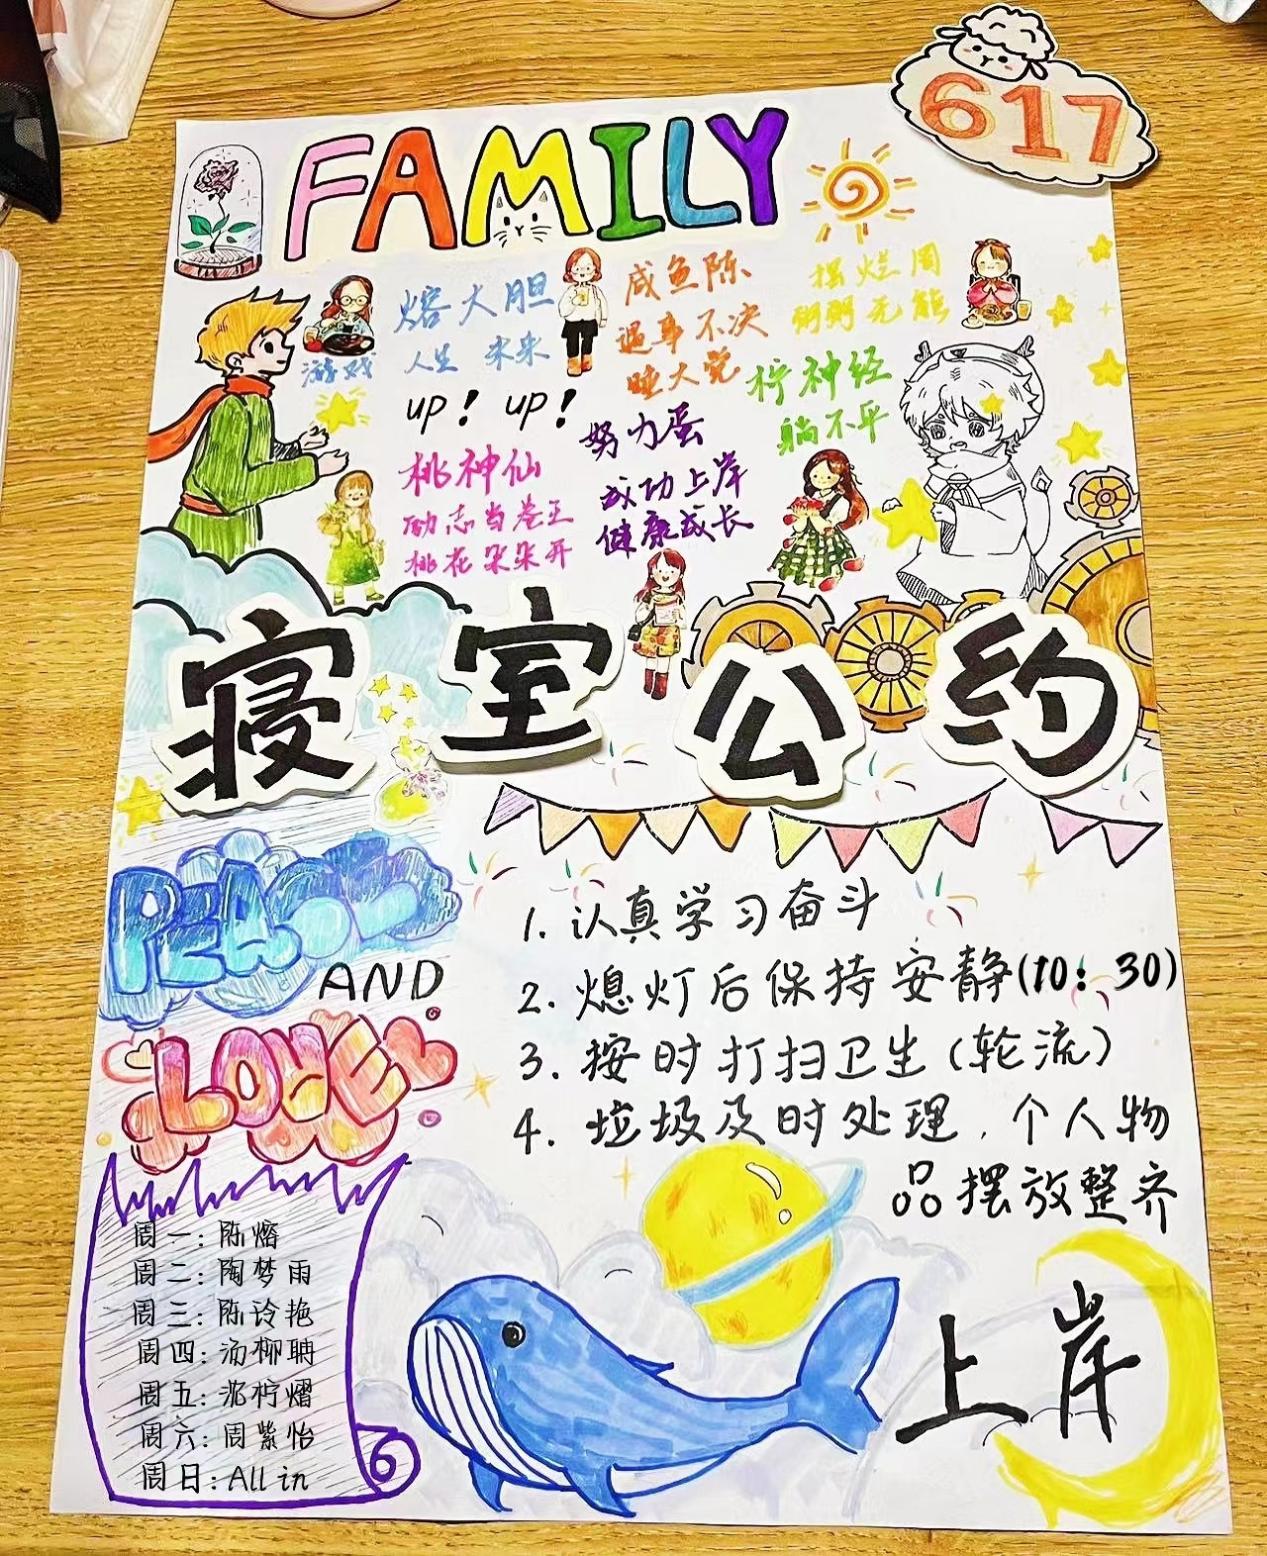 617
FAMILY
熔大胆
人生 未来
up! up!
游戏
咸鱼陈
遇事不决
睡大觉
摆烂周
粥粥无能
柠神经
躺不平
努力蛋
成功上岸
健康成长
桃神仙
励志当卷王
桃花朵朵开
寝室公约
PEACE
AND
LOVE
1. 认真学习奋斗
2. 熄灯后保持安静(10:30)
3. 按时打扫卫生(轮流)
4. 垃圾及时处理,个人物
品摆放整齐
周一:陈熔
周二:陶梦雨
周三:陈诠艳
周四:汤柳聃
周五:柠熠
周六:周紫怡
周日:All in
6
上岸